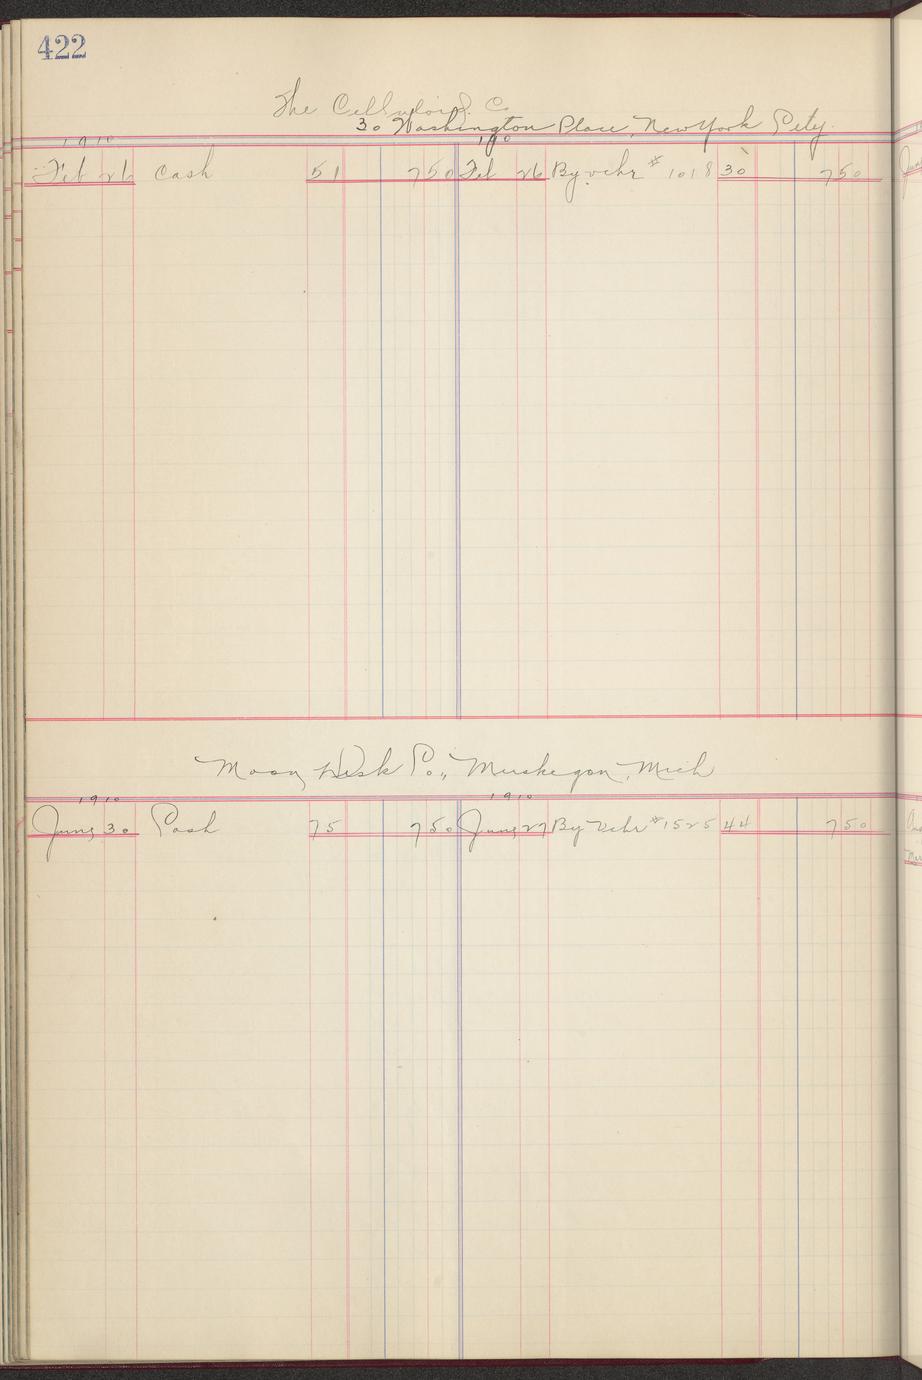 422
The Celluloid Co
30 Washington Place, New York City.
1910 1910
Feb 26 Cash 51 750 Feb 26 By vchr # 1018 30 750
Moon Desk Co., Muskegon, Mich
1910 1910
June 30 Cash 75 750 June 27 By Vchr # 1525 44 750